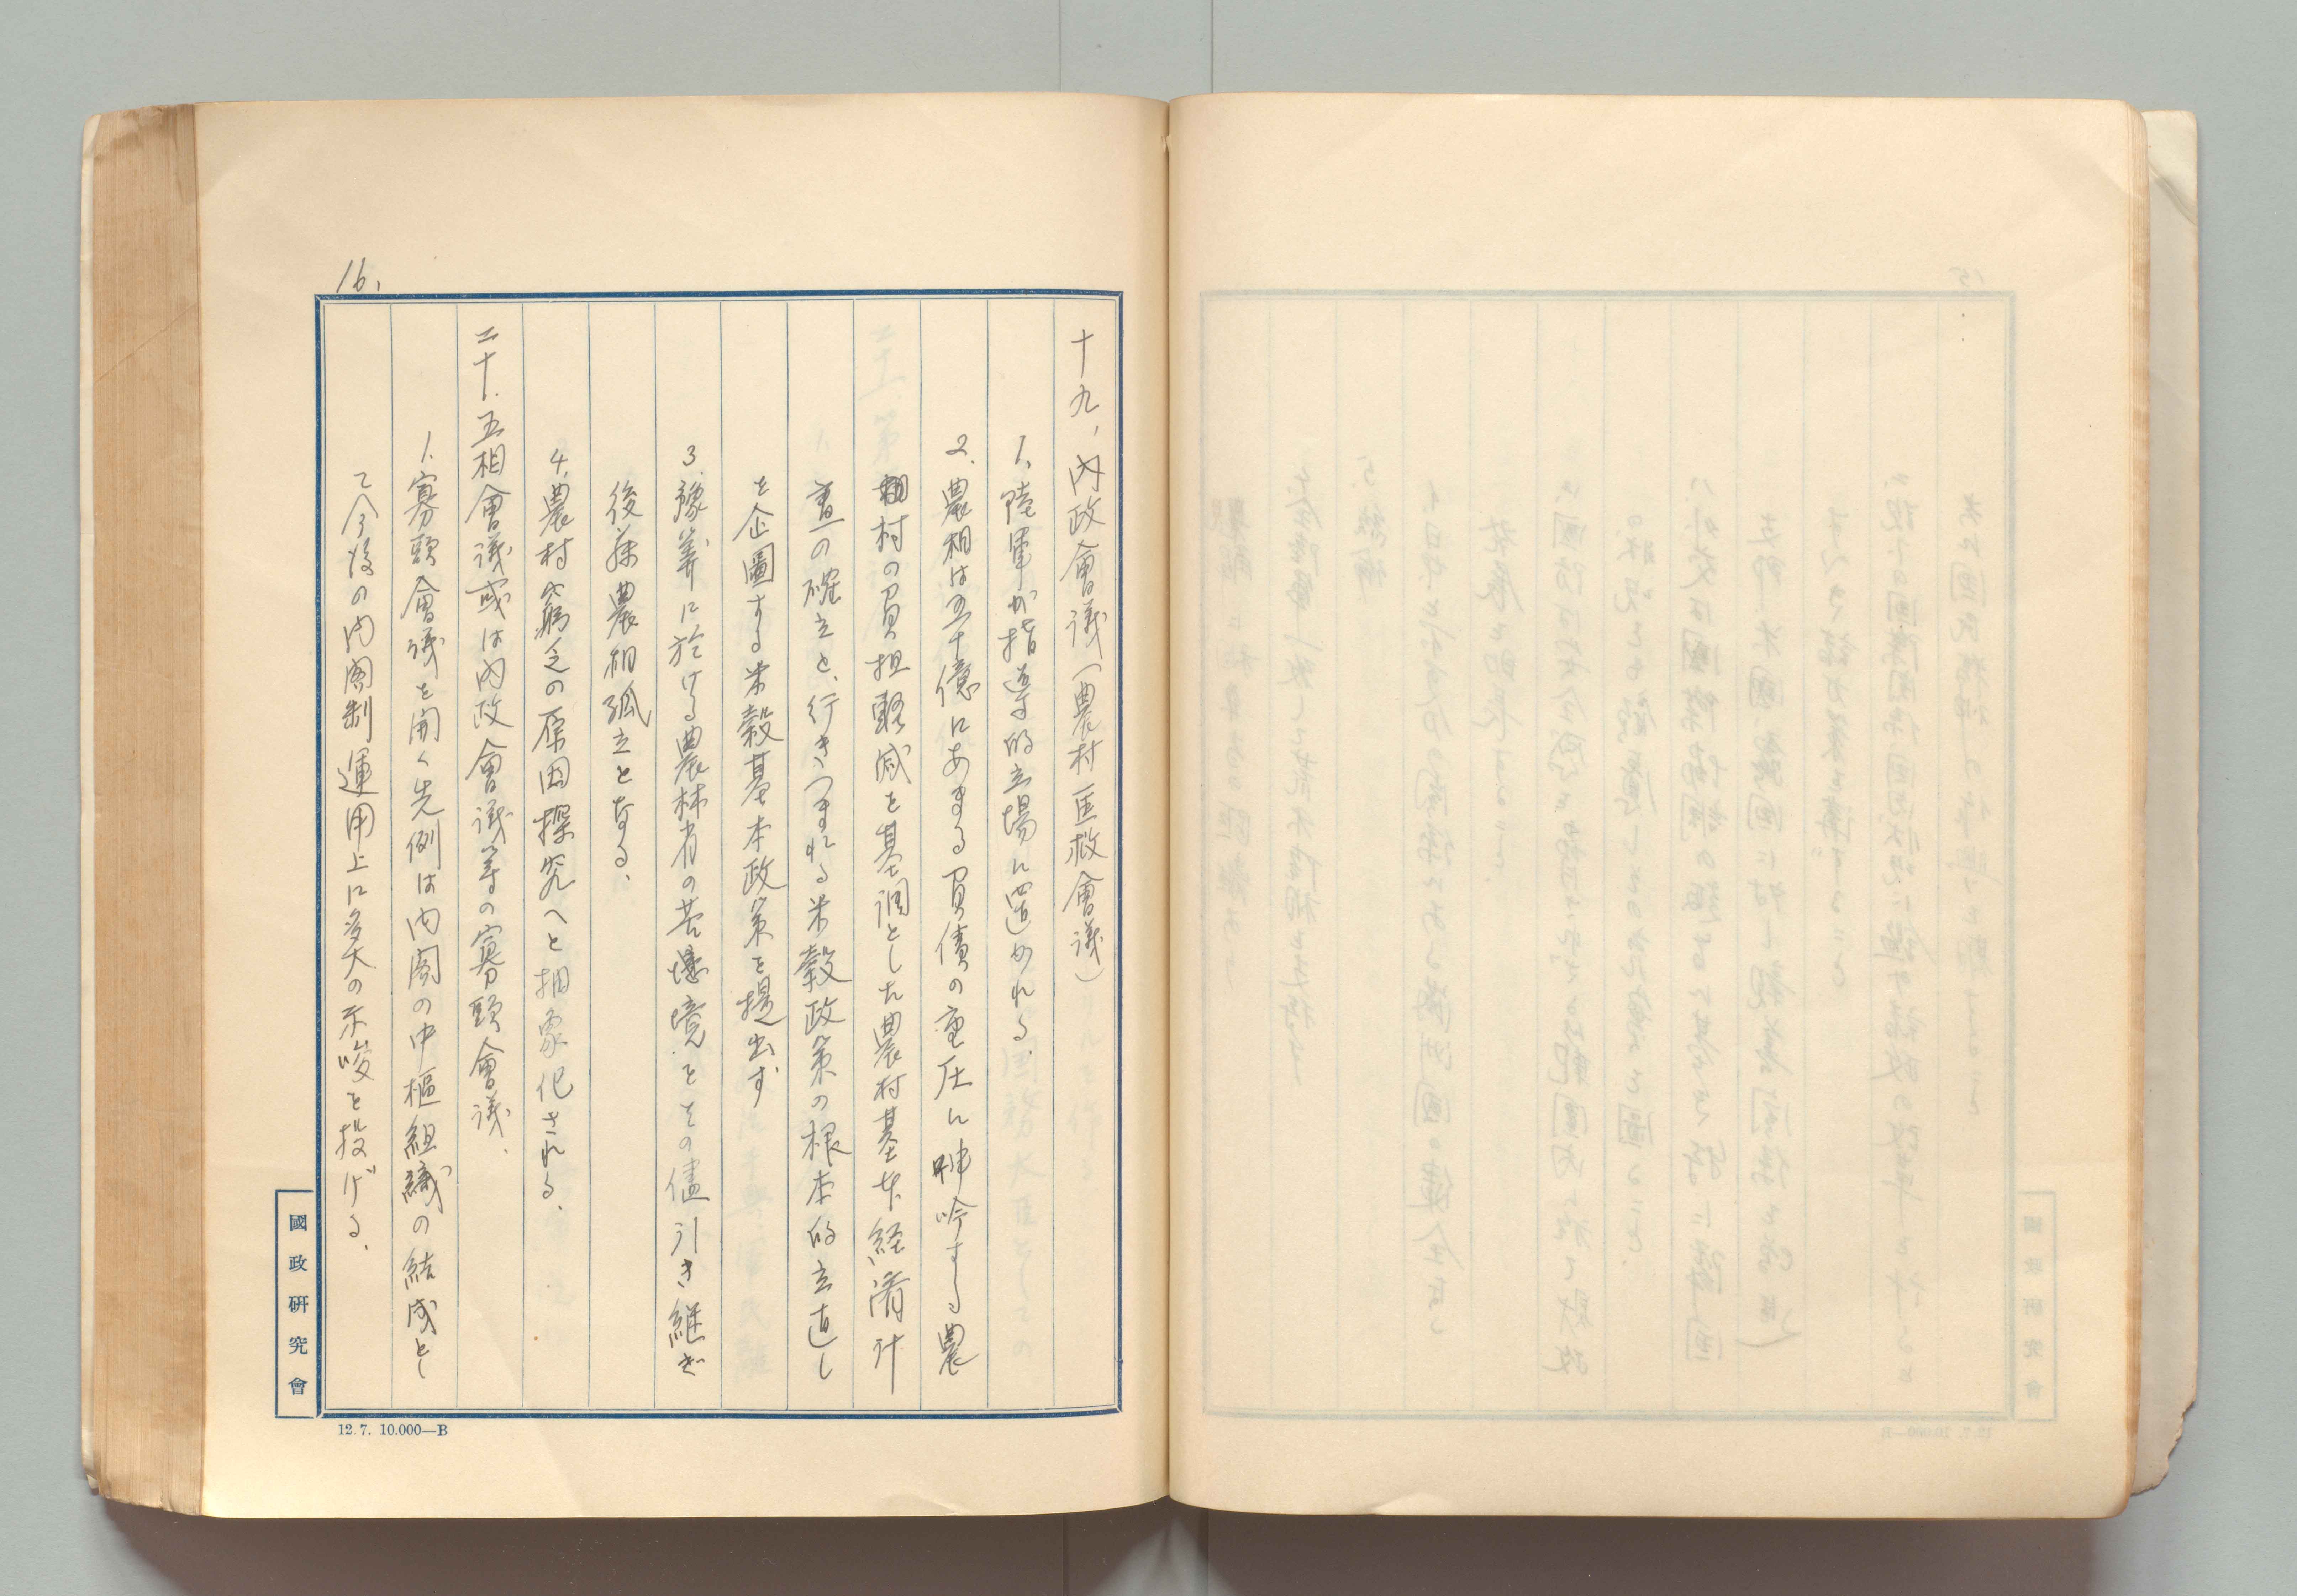 16.
十九、內政會議(農村匡救會議)
1. 陸軍が指導的立場に置かれる.
2. 農相は五十億にあまる負債の重圧に呻吟する農
村の負担軽減を基調とした農村基本経済計
畫の確立と、行きつまれる米穀政策の根本的立直し
を企圖する米穀基本政策を提出す
3. 豫算に於ける農林省の苦境をその儘引き継ぎ
後藤農相孤立となる.
4. 農村窮乏の原因探究へと抽象化される.
二十. 五相會議或は內政會議等の寡頭會議.
1. 寡頭會議を開く先例は内閣の中樞組織の結成とし
て今後の内閣制運用上に多大の示唆を投げる.
國政研究會
12.7. 10.000—B